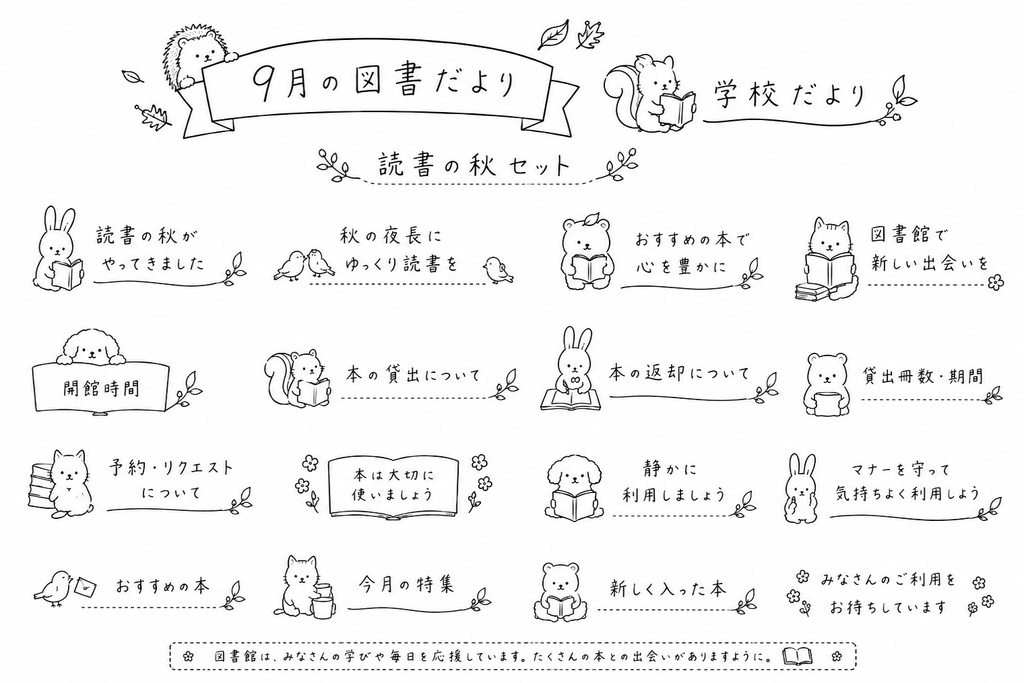 9月の図書だより
学校だより
読書の秋セット
読書の秋が
やってきました
秋の夜長に
ゆっくり読書を
おすすめの本で
心を豊かに
図書館で
新しい出会いを
開館時間
本の貸出について
本の返却について
貸出冊数・期間
予約・リクエスト
について
本は大切に
使いましょう
静かに
利用しましょう
マナーを守って
気持ちよく利用しよう
おすすめの本
今月の特集
新しく入った本
みなさんのご利用を
お待ちしています
図書館は、みなさんの学びや毎日を応援しています。たくさんの本との出会いがありますように。